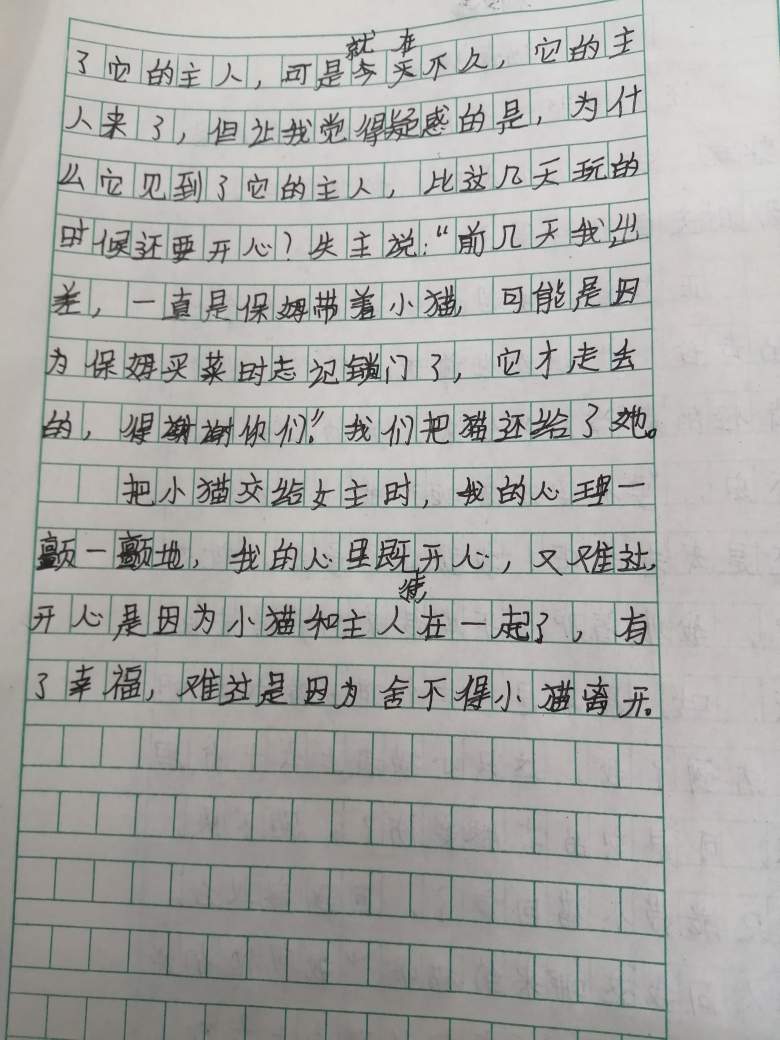 了它的主人，可是就在今天不久，它的主
人来了，但让我觉得疑惑的是，为什
么它见到了它的主人，比这几天玩的
时候还要开心？失主说：“前几天我出
差，一真是保姆带着小猫，可能是因
为保姆买菜时忘记锁门了，它才走去
的，得谢谢你们。”我们把猫还给了她。
把小猫交给女主时，我的心理一
颤一颤地，我的心里既开心，又难过，
开心是因为小猫和主人在一起了，有
了幸福，难过是因为舍不得小猫离开。